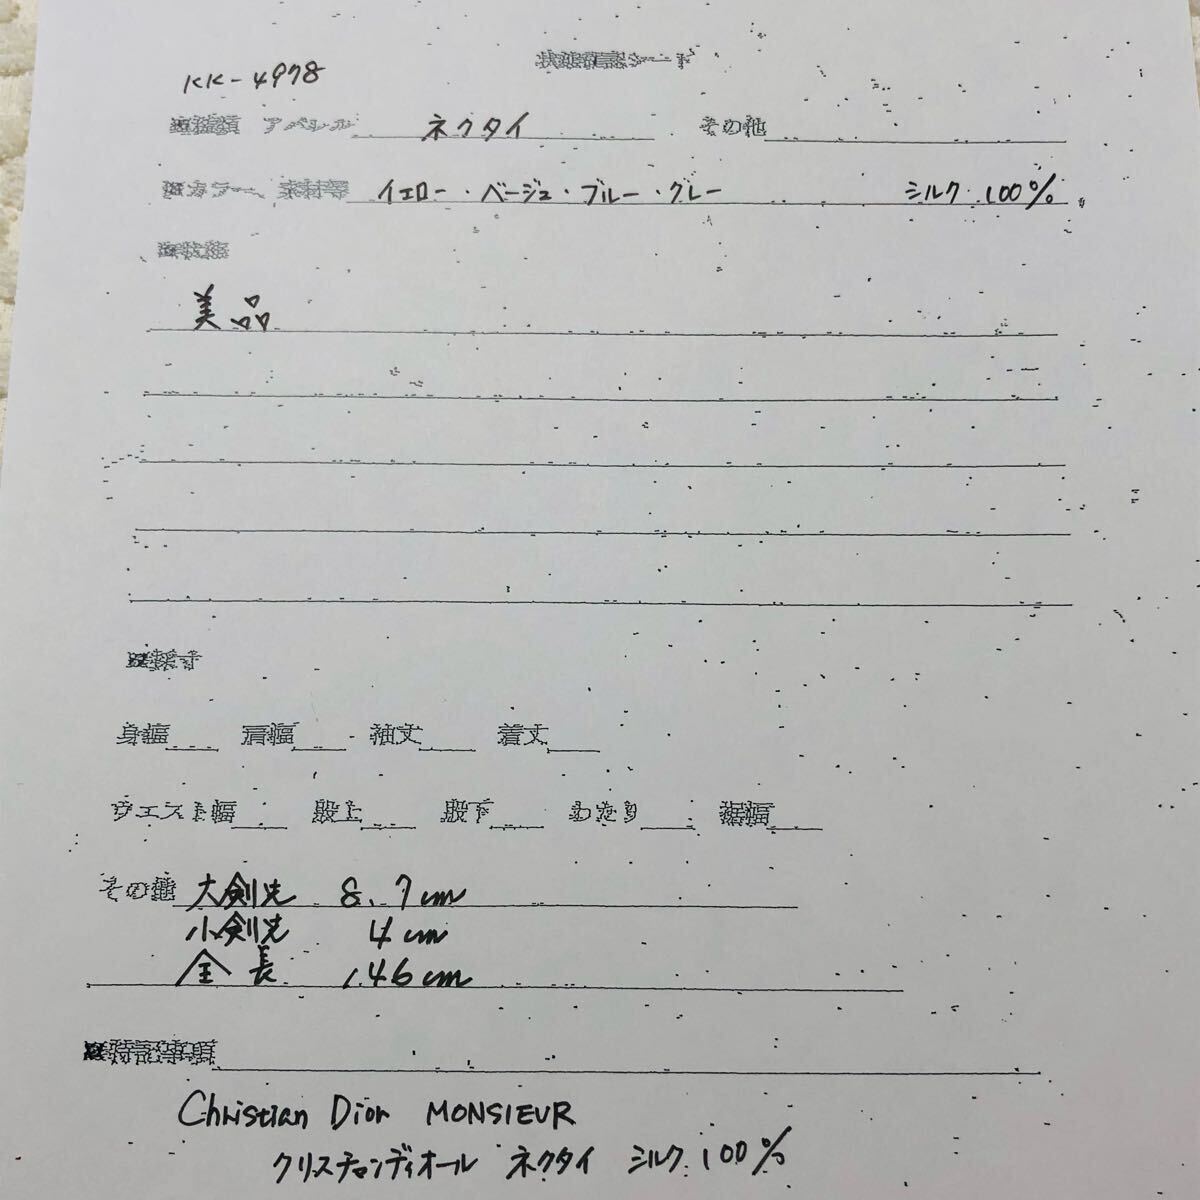 KK-4978
状態確認シート
■種類 アパレル ネクタイ その他
■カラー、素材等 イエロー・ベージュ・ブルー・グレー シルク 100%
■状態
美品
■採寸
身幅 肩幅 袖丈 着丈
ウエスト幅 股上 股下 わたり 裾幅
その他 大剣先 8.7cm
小剣先 4cm
全長 146cm
■特記事項
Christian Dior MONSIEUR
クリスチャンディオール ネクタイ シルク 100%